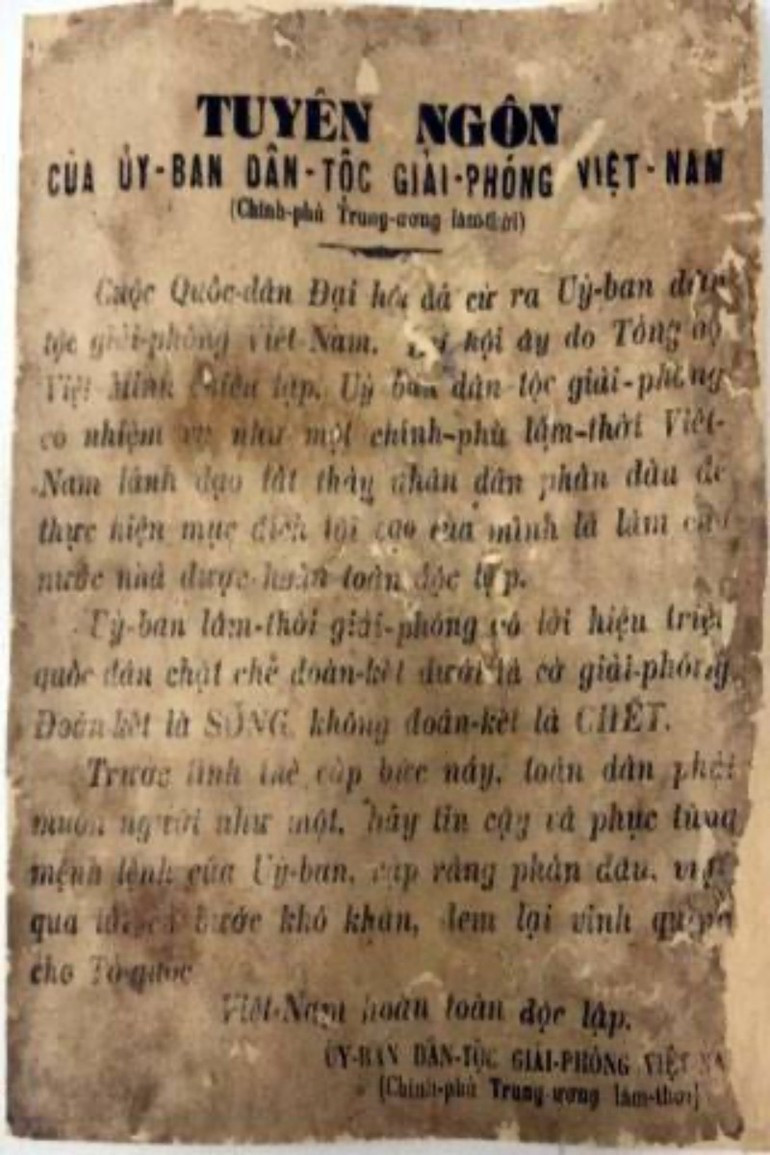 TUYÊN NGÔN
CỦA ỦY-BAN DÂN-TỘC GIẢI-PHÓNG VIỆT-NAM
(Chính-phủ Trung-ương lâm-thời)
Cuộc Quốc-dân Đại hội đã cử ra Uỷ-ban dân
tộc giải-phóng Việt-Nam. Đại hội ấy do Tổng bộ
Việt Minh triệu tập. Uỷ ban dân tộc giải-phóng
có nhiệm vụ như một chính-phủ lâm-thời Việt-
Nam lãnh đạo tất thảy nhân dân phấn đấu để
thực hiện mục đích tối cao của mình là làm cho
nước nhà được hoàn toàn độc lập.
Uỷ-ban lâm-thời giải-phóng có lời hiệu triệu
quốc dân chặt chẽ đoàn-kết dưới lá cờ giải-phóng.
Đoàn kết là SỐNG, không đoàn-kết là CHẾT.
Trước tình thế cấp bức này, toàn dân phải
muôn người như một, hãy tin cậy và phục tùng
mệnh lệnh của Uỷ-ban, rắng phấn đấu, vượt
qua bước khó khăn, đem lại vinh quang
cho Tổ-quốc
Việt-Nam hoàn toàn độc lập.
ỦY-BAN DÂN-TỘC GIẢI-PHÓNG VIỆT NA
(Chính-phủ Trung-ương lâm-thời)